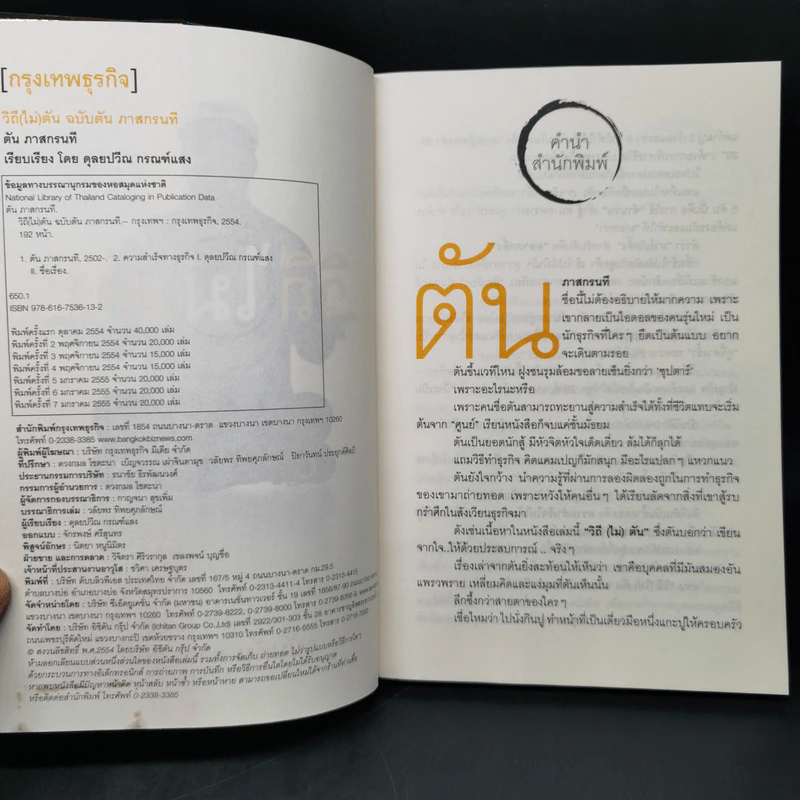 [กรุงเทพธุรกิจ]
วิถี(ไม่)ตัน ฉบับตัน ภาสกรนที
ตัน ภาสกรนที
เรียบเรียง โดย ดุลยปวีณ กรณฑ์แสง
ข้อมูลทางบรรณานุกรมของหอสมุดแห่งชาติ
National Library of Thailand Cataloging in Publication Data
ตัน ภาสกรนที.
วิถี(ไม่)ตัน ฉบับตัน ภาสกรนที.-- กรุงเทพฯ : กรุงเทพธุรกิจ, 2554.
192 หน้า.
1. ตัน ภาสกรนที, 2502-. 2. ความสำเร็จทางธุรกิจ I. ดุลยปวีณ กรณฑ์แสง
II. ชื่อเรื่อง.
650.1
ISBN 978-616-7536-13-2
พิมพ์ครั้งแรก ตุลาคม 2554 จำนวน 40,000 เล่ม
พิมพ์ครั้งที่ 2 พฤศจิกายน 2554 จำนวน 20,000 เล่ม
พิมพ์ครั้งที่ 3 พฤศจิกายน 2554 จำนวน 15,000 เล่ม
พิมพ์ครั้งที่ 4 พฤศจิกายน 2554 จำนวน 15,000 เล่ม
พิมพ์ครั้งที่ 5 มกราคม 2555 จำนวน 20,000 เล่ม
พิมพ์ครั้งที่ 6 มกราคม 2555 จำนวน 20,000 เล่ม
พิมพ์ครั้งที่ 7 มกราคม 2555 จำนวน 20,000 เล่ม
สำนักพิมพ์กรุงเทพธุรกิจ : เลขที่ 1854 ถนนบางนา-ตราด แขวงบางนา เขตบางนา กรุงเทพฯ 10260
โทรศัพท์ 0-2338-3385 www.bangkokbiznews.com
ผู้พิมพ์ผู้โฆษณา : บริษัท กรุงเทพธุรกิจ มีเดีย จำกัด
ที่ปรึกษา : ดวงกมล โชตะนา เบ็ญจวรรณ เผ่าจินดามุข วลัยพร ทิพยศุภลักษณ์ ปิยาวันท์ ประยุกต์ศิลป์
ประธานกรรมการบริษัท : ธนาชัย ธีรพัฒนวงศ์
กรรมการผู้อำนวยการ : ดวงกมล โชตะนา
ผู้จัดการกองบรรณาธิการ : กาญจนา สุขเพิ่ม
บรรณาธิการเล่ม : วลัยพร ทิพยศุภลักษณ์
ผู้เรียบเรียง : ดุลยปวีณ กรณฑ์แสง
ออกแบบ : จักรพงษ์ ศรีสุนทร
พิสูจน์อักษร : นิตยา หนูนิมิตร
ฝ่ายขาย และการตลาด : วิจิตรา ศิริวรากุล เชลงพจน์ บุญซื่อ
เจ้าหน้าที่ประสานงานอาวุโส : ชวิศา เศรษฐบุตร
พิมพ์ที่ : บริษัท ดับบลิวพีเอส ประเทศไทย จำกัด เลขที่ 167/5 หมู่ 4 ถนนบางนา-ตราด กม.29.5
ตำบลบางบ่อ อำเภอบางบ่อ จังหวัดสมุทรปราการ 10560 โทรศัพท์ 0-2313-4411-4 โทรสาร 0-2313-4415
จัดจำหน่ายโดย : บริษัท ซีเอ็ดยูเคชั่น จำกัด (มหาชน) อาคารเนชั่นทาวเวอร์ ชั้น 19 เลขที่ 1858/87-90 ถนนบางนา-ตราด
แขวงบางนา เขตบางนา กรุงเทพฯ 10260 โทรศัพท์ 0-2739-8222, 0-2739-8000
จัดทำโดย : บริษัท อิชิตัน กรุ๊ป จำกัด (Ichitan Group Co.,Ltd) เลขที่ 2922/301-303 ชั้น 28
ถนนเพชรบุรีตัดใหม่ แขวงบางกะปิ เขตห้วยขวาง กรุงเทพฯ 10310 โทรศัพท์ 0-2716-5555 โทรสาร
© สงวนลิขสิทธิ์ พ.ศ.2554 โดยบริษัท อิชิตัน กรุ๊ป จำกัด
ห้ามลอกเลียนแบบส่วนหนึ่งส่วนใดของหนังสือเล่มนี้ รวมทั้งการจัดเก็บ ถ่ายทอด ไม่ว่ารูปแบบหรือวิธีการใดๆ
ด้วยกระบวนการทางอิเล็กทรอนิกส์ การถ่ายภาพ การบันทึก หรือวิธีการอื่นใดโดยไม่ได้รับอนุญาต
หากพบหนังสือมีปัญหาหน้าติด หน้าสลับ หน้าซ้ำ หรือหน้าหาย สามารถขอเปลี่ยนใหม่ได้จากร้านที่ท่านซื้อ
หรือติดต่อสำนักพิมพ์ โทรศัพท์ 0-2338-3385
คำนำ
สำนักพิมพ์
ตัน ภาสกรนที
ชื่อนี้ไม่ต้องอธิบายให้มากความ เพราะ
เขากลายเป็นไอดอลของคนรุ่นใหม่ เป็น
นักธุรกิจที่ใครๆ ยึดเป็นต้นแบบ อยาก
จะเดินตามรอย
ตันขึ้นเวทีไหน ฝูงชนรุมล้อมขอลายเซ็นยิ่งกว่า 'ซุปตาร์'
เพราะอะไรนะหรือ
เพราะคนชื่อตันสามารถทะยานสู่ความสำเร็จได้ทั้งที่ชีวิตแทบจะเริ่ม
ต้นจาก "ศูนย์" เรียนหนังสือก็จบแค่ชั้นมัธยม
ตันเป็นยอดนักสู้ มีหัวจิตหัวใจเด็ดเดี่ยว ล้มได้ก็ลุกได้
แถมวิธีทำธุรกิจ คิดแคมเปญก็มักสนุก มีอะไรแปลกๆ แหวกแนว
ตันยังใจกว้าง นำความรู้ที่ผ่านการลองผิดลองถูกในการทำธุรกิจ
ของเขามาถ่ายทอด เพราะหวังให้คนอื่นๆ ได้เรียนลัดจากสิ่งที่เขาสู้รบ
กรำศึกในสังเวียนธุรกิจมา
ดังเช่นเนื้อหาในหนังสือเล่มนี้ "วิถี (ไม่) ตัน" ซึ่งตันบอกว่า เขียน
จากใจ..ให้ด้วยประสบการณ์ .. จริงๆ
เรื่องเล่าจากตันยิ่งสะท้อนให้เห็นว่า เขาคือบุคคลที่มีมันสมองอัน
แพรวพราย เหลี่ยมคิดและแง่มุมที่ตันเห็นนั้น
ลึกซึ้งกว่าสายตาของใครๆ
เชื่อไหมว่า ไปนั่งกินปู ทำหน้าที่เป็นเดี่ยวมือหนึ่งแกะปูให้ครอบครัว